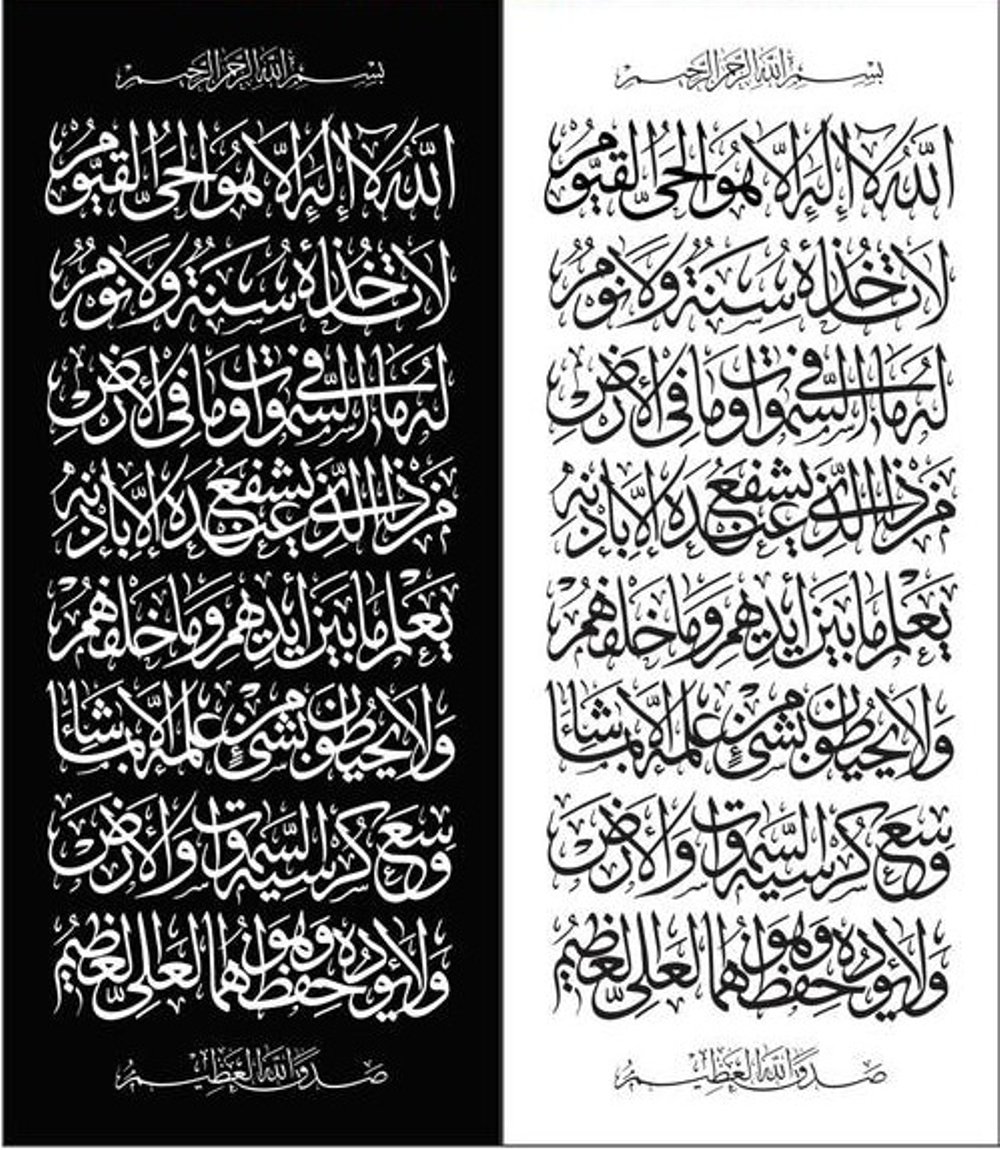 بسم الله الرحمن الرحيم
الله لا إله إلا هو الحي القيوم
لا تأخذه سنة ولا نوم
له ما في السموات وما في الأرض
من ذا الذي يشفع عنده إلا بإذنه
يعلم ما بين أيديهم وما خلفهم
ولا يحيطون بشيء من علمه إلا بما شاء
وسع كرسيه السموات والأرض
ولا يؤده حفظهما وهو العلي العظيم
صدق الله العظيم
بسم الله الرحمن الرحيم
الله لا إله إلا هو الحي القيوم
لا تأخذه سنة ولا نوم
له ما في السموات وما في الأرض
من ذا الذي يشفع عنده إلا بإذنه
يعلم ما بين أيديهم وما خلفهم
ولا يحيطون بشيء من علمه إلا بما شاء
وسع كرسيه السموات والأرض
ولا يؤده حفظهما وهو العلي العظيم
صدق الله العظيم